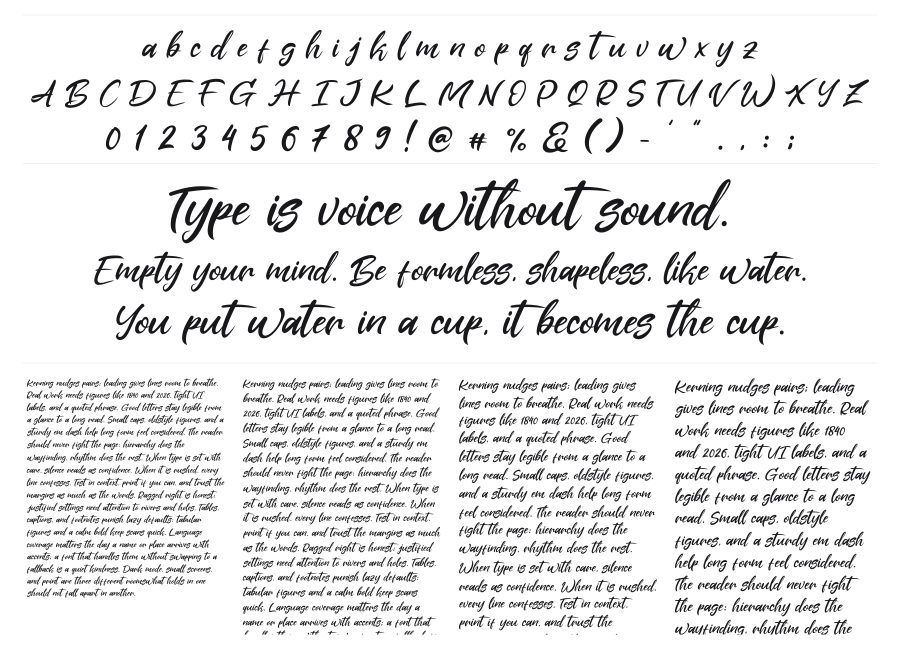 a b c d e f g h i j k l m n o p q r s t u v w x y z
A B C D E F G H I J K L M N O P Q R S T U V W X Y Z
0 1 2 3 4 5 6 7 8 9 ! @ # % & ( ) - ' " . , : ;
Type is voice without sound.
Empty your mind. Be formless, shapeless, like water.
You put water in a cup, it becomes the cup.
Kerning nudges pairs; leading gives lines room to breathe.
Real work needs figures like 1840 and 2026, tight UI
labels, and a quoted phrase. Good letters stay legible from
a glance to a long read. Small caps, oldstyle figures, and a
sturdy em dash help long form feel considered. The reader
should never fight the page; hierarchy does the
wayfinding, rhythm does the rest. When type is set with
care, silence reads as confidence. When it is rushed, every
line confesses. Test in context, print if you can, and trust the
margins as much as the words. Ragged right is honest;
justified settings need attention to rivers and holes. Tables,
captions, and footnotes punish lazy defaults; tabular
figures and a calm bold keep scans quick. Language
coverage matters the day a name or place arrives with
accents; a font that handles them without swapping to a
fallback is a quiet kindness. Dark mode, small screens,
and print are three different rooms; what holds in one
should not fall apart in another.
Kerning nudges pairs; leading gives lines room to
breathe. Real work needs figures like 1840 and
2026, tight UI labels, and a quoted phrase. Good
letters stay legible from a glance to a long read.
Small caps, oldstyle figures, and a sturdy em
dash help long form feel considered. The reader
should never fight the page; hierarchy does the
wayfinding, rhythm does the rest. When type is
set with care, silence reads as confidence. When
it is rushed, every line confesses. Test in context,
print if you can, and trust the margins as much
as the words. Ragged right is honest; justified
settings need attention to rivers and holes. Tables,
captions, and footnotes punish lazy defaults;
tabular figures and a calm bold keep scans
quick. Language coverage matters the day a
name or place arrives with accents; a font that
Kerning nudges pairs; leading gives
lines room to breathe. Real work needs
figures like 1840 and 2026, tight UI
labels, and a quoted phrase. Good
letters stay legible from a glance to a
long read. Small caps, oldstyle figures,
and a sturdy em dash help long form
feel considered. The reader should never
fight the page; hierarchy does the
wayfinding, rhythm does the rest.
When type is set with care, silence
reads as confidence. When it is rushed,
every line confesses. Test in context,
print if you can, and trust the
Kerning nudges pairs; leading
gives lines room to breathe. Real
work needs figures like 1840
and 2026, tight UI labels, and a
quoted phrase. Good letters stay
legible from a glance to a long
read. Small caps, oldstyle
figures, and a sturdy em dash
help long form feel considered.
The reader should never fight
the page; hierarchy does the
wayfinding, rhythm does the